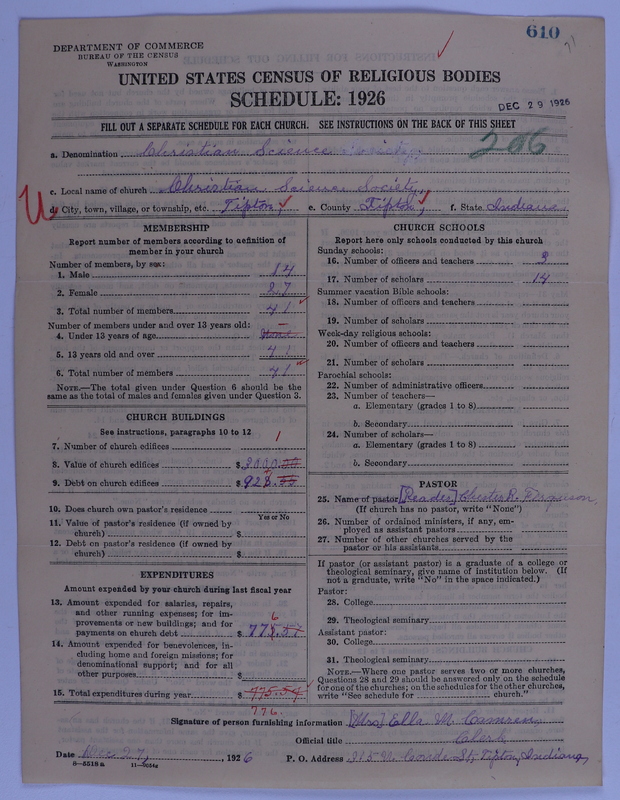 610
71
DEPARTMENT OF COMMERCE
BUREAU OF THE CENSUS
WASHINGTON
UNITED STATES CENSUS OF RELIGIOUS BODIES
SCHEDULE: 1926
DEC 29 1926
FILL OUT A SEPARATE SCHEDULE FOR EACH CHURCH. SEE INSTRUCTIONS ON THE BACK OF THIS SHEET
206
a. Denomination Christian Science Society
c. Local name of church Christian Science Society,
d. City, town, village, or township, etc. Tipton, e. County Tipton, f. State Indiana
MEMBERSHIP
Report number of members according to definition of
member in your church
Number of members, by sex:
1. Male 14
2. Female 27
3. Total number of members 41
Number of members under and over 13 years old:
4. Under 13 years of age None
5. 13 years old and over 41
6. Total number of members 41
NOTE.—The total given under Question 6 should be the
same as the total of males and females given under Question 3.
CHURCH BUILDINGS
See instructions, paragraphs 10 to 12
7. Number of church edifices 1
8. Value of church edifices $ 3000.00
9. Debt on church edifices $ 928.
10. Does church own pastor's residence
Yes or No
11. Value of pastor's residence (if owned by
church) $
12. Debt on pastor's residence (if owned by
church) $
EXPENDITURES
Amount expended by your church during last fiscal year
13. Amount expended for salaries, repairs,
and other running expenses; for im-
provements or new buildings; and for
payments on church debt $ 775.57
6
14. Amount expended for benevolences, in-
cluding home and foreign missions; for
denominational support; and for all
other purposes $
15. Total expenditures during year $ 775.57
776.
CHURCH SCHOOLS
Report here only schools conducted by this church
Sunday schools:
16. Number of officers and teachers 3
17. Number of scholars 14
Summer vacation Bible schools:
18. Number of officers and teachers
19. Number of scholars
Week-day religious schools:
20. Number of officers and teachers
21. Number of scholars
Parochial schools:
22. Number of administrative officers
23. Number of teachers—
a. Elementary (grades 1 to 8)
b. Secondary
24. Number of scholars—
a. Elementary (grades 1 to 8)
b. Secondary
PASTOR
25. Name of pastor [Reader] Chester R. Ferguson,
(If church has no pastor, write "None")
26. Number of ordained ministers, if any, em-
ployed as assistant pastors
27. Number of other churches served by the
pastor or his assistants
If pastor (or assistant pastor) is a graduate of a college or
theological seminary, give name of institution below. (If
not a graduate, write "No" in the space indicated.)
Pastor:
28. College
29. Theological seminary
Assistant pastor:
30. College
31. Theological seminary
NOTE.—Where one pastor serves two or more churches,
Questions 28 and 29 should be answered only on the schedule
for one of the churches; on the schedules for the other churches,
write "See schedule for church."
Signature of person furnishing information (Mrs) Ella M.
Official title Clerk
Date Dec 27, 1926 P. O. Address 315 N. Conde St, Tipton, Indiana,
8-5518a 11-9054a